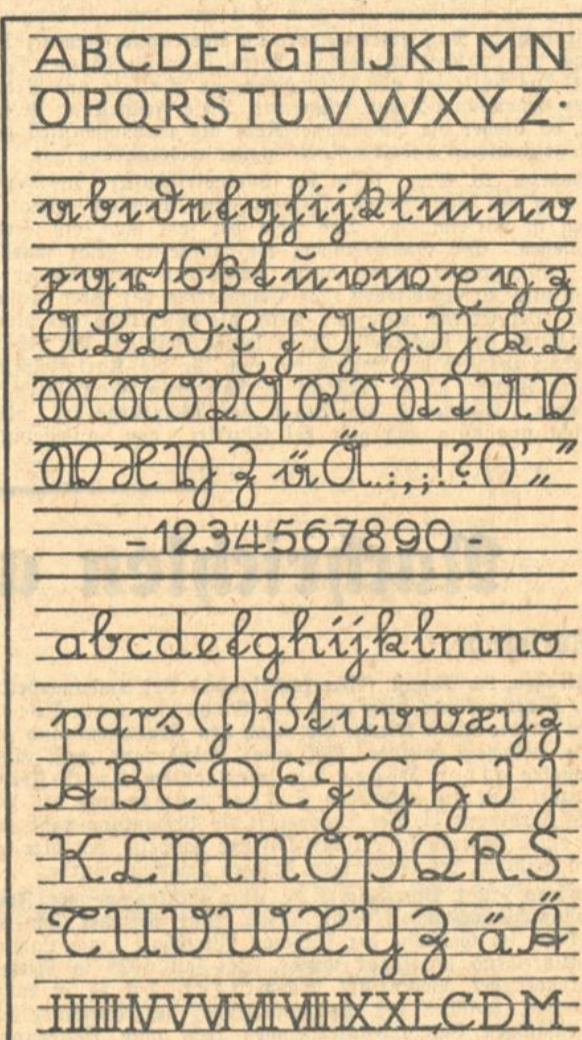 ABCDEFGHIJKLMN
OPQRSTUVWXYZ.
abcdefghijklmno
pqrſsßtŭvwxyz
ABCDEFGHIJKL
MNOPQRSTUV
WXYZ äÄ.:,;!?()'„“
-1234567890-
abcdefghijklmno
pqrs(ſ)ßtuvwxyz
ABCDEFGHIJ
KLMNOPQRS
TUVWXYZ äÄ
I II III IV V VI VII VIII IX X L C D M